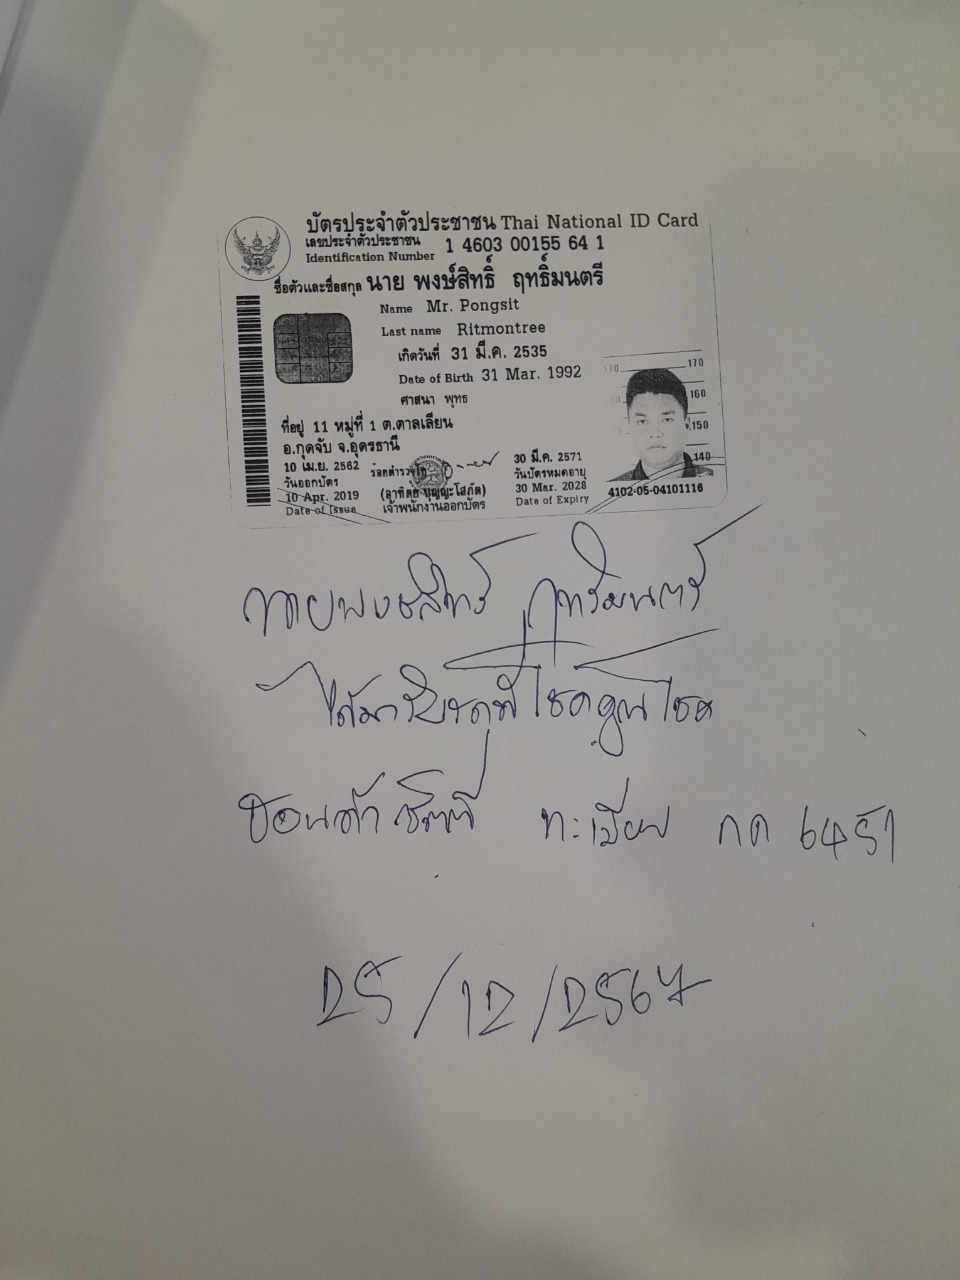 บัตรประจำตัวประชาชน Thai National ID Card
เลขประจำตัวประชาชน 1 4603 00155 64 1
Identification Number
ชื่อตัวและชื่อสกุล นาย พงษ์สิทธิ์ ฤทธิ์มนตรี
Name Mr. Pongsit
Last name Ritmontree
เกิดวันที่ 31 มี.ค. 2535
Date of Birth 31 Mar. 1992
ศาสนา พุทธ
ที่อยู่ 11 หมู่ที่ 1 ต.ตาลเลียน
อ.กุดจับ จ.อุดรธานี
10 เม.ย. 2562
วันออกบัตร
10 Apr. 2019
Date of Issue
ร้อยตำรวจโท
เจ้าพนักงานออกบัตร
30 มี.ค. 2571
วันบัตรหมดอายุ
30 Mar. 2028
Date of Expiry
170 170
160
150
140
4102-05-04101116
นายพงษ์สิทธิ์ ฤทธิ์มนตรี
ได้มารับรถที่ โชคคูณโชค
ฮอนด้า ซิตตี้ ทะเบียน กด 6451
25/12/2567